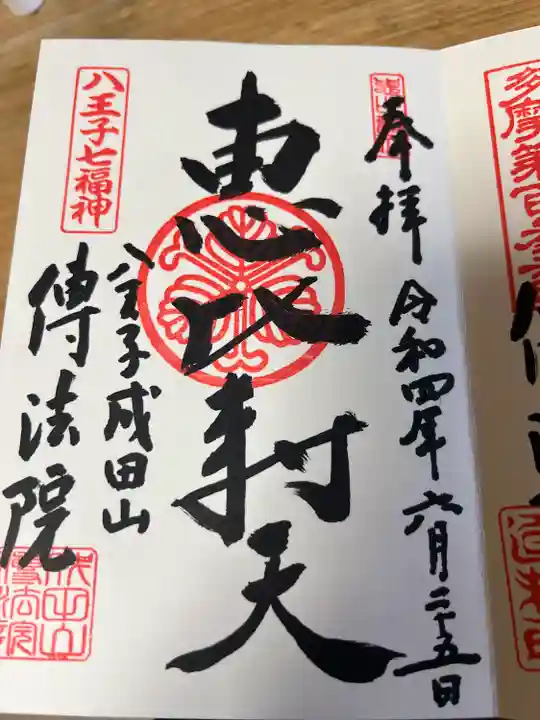 奉拝
令和四年六月二十五日
恵比寿天
八王子成田山
傳法院
八王子七福神
多摩第百